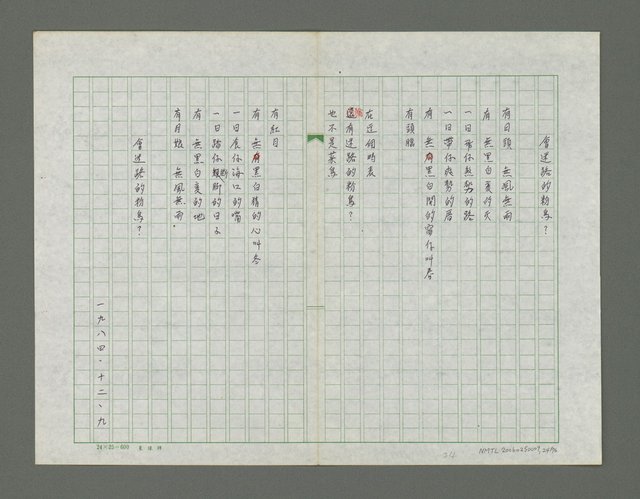 會迷路的粉鳥？
有日頭　無風無雨
有　無黑白變的天
一日帶你無勢的路
一日帶你夜勢的厝
有　無黑白開的窗仔叫春
有頭腦
在這個時表
還有迷路的粉鳥？
也不是菜鳥
有紅目
有　無黑白積的心叫春
一日食你海口的嘴
一日踏你腳的日子
有　無黑白変的地
有月娘　無風無雨。
會迷路的粉鳥？
一九八四．十二、九
24×25＝600
NMTL 20060250007, 24/96
24